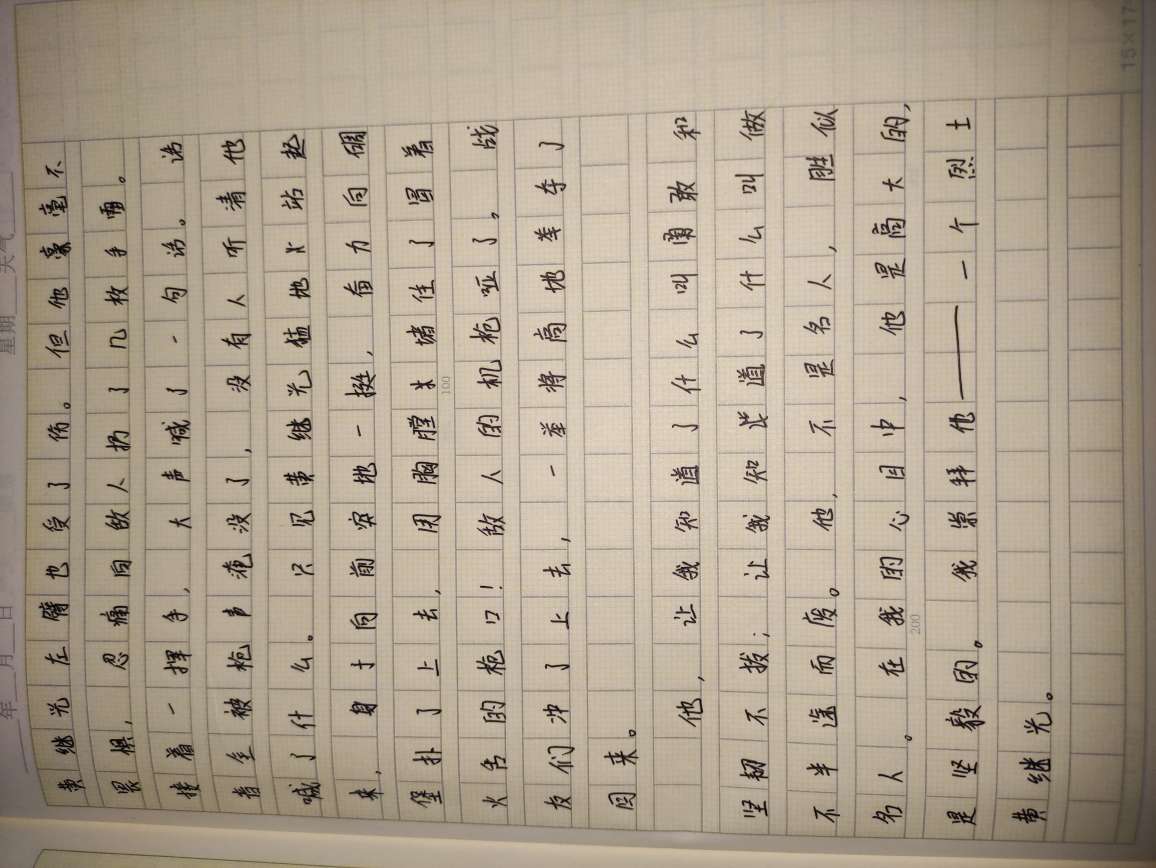 年 月 日 星期 天气
黄继光左臂也受了伤。但他豪毫不
畏惧,忍痛向敌人扔了几枚手雷。
接着一挥手,大声喊了一句话。话
音全被枪声淹没了,没有人听清他
喊了什么。只见黄继光猛地火站起
来,身子向前突地一挺,奋力向碉
堡扑了上去,用胸膛来堵住了冒着
火舌的枪口!敌人的机枪哑了。战
友们冲了上去,一举将高地夺了
回来。
他,让我知道了什么叫勇敢和
坚韧不拔;让我知道了什么叫做
不半途而废。他,不是名人,胜似
名人。在我的心目中,他是高大的,
是坚毅的。我崇拜他——一个烈士
黄继光。
100
200
15×17